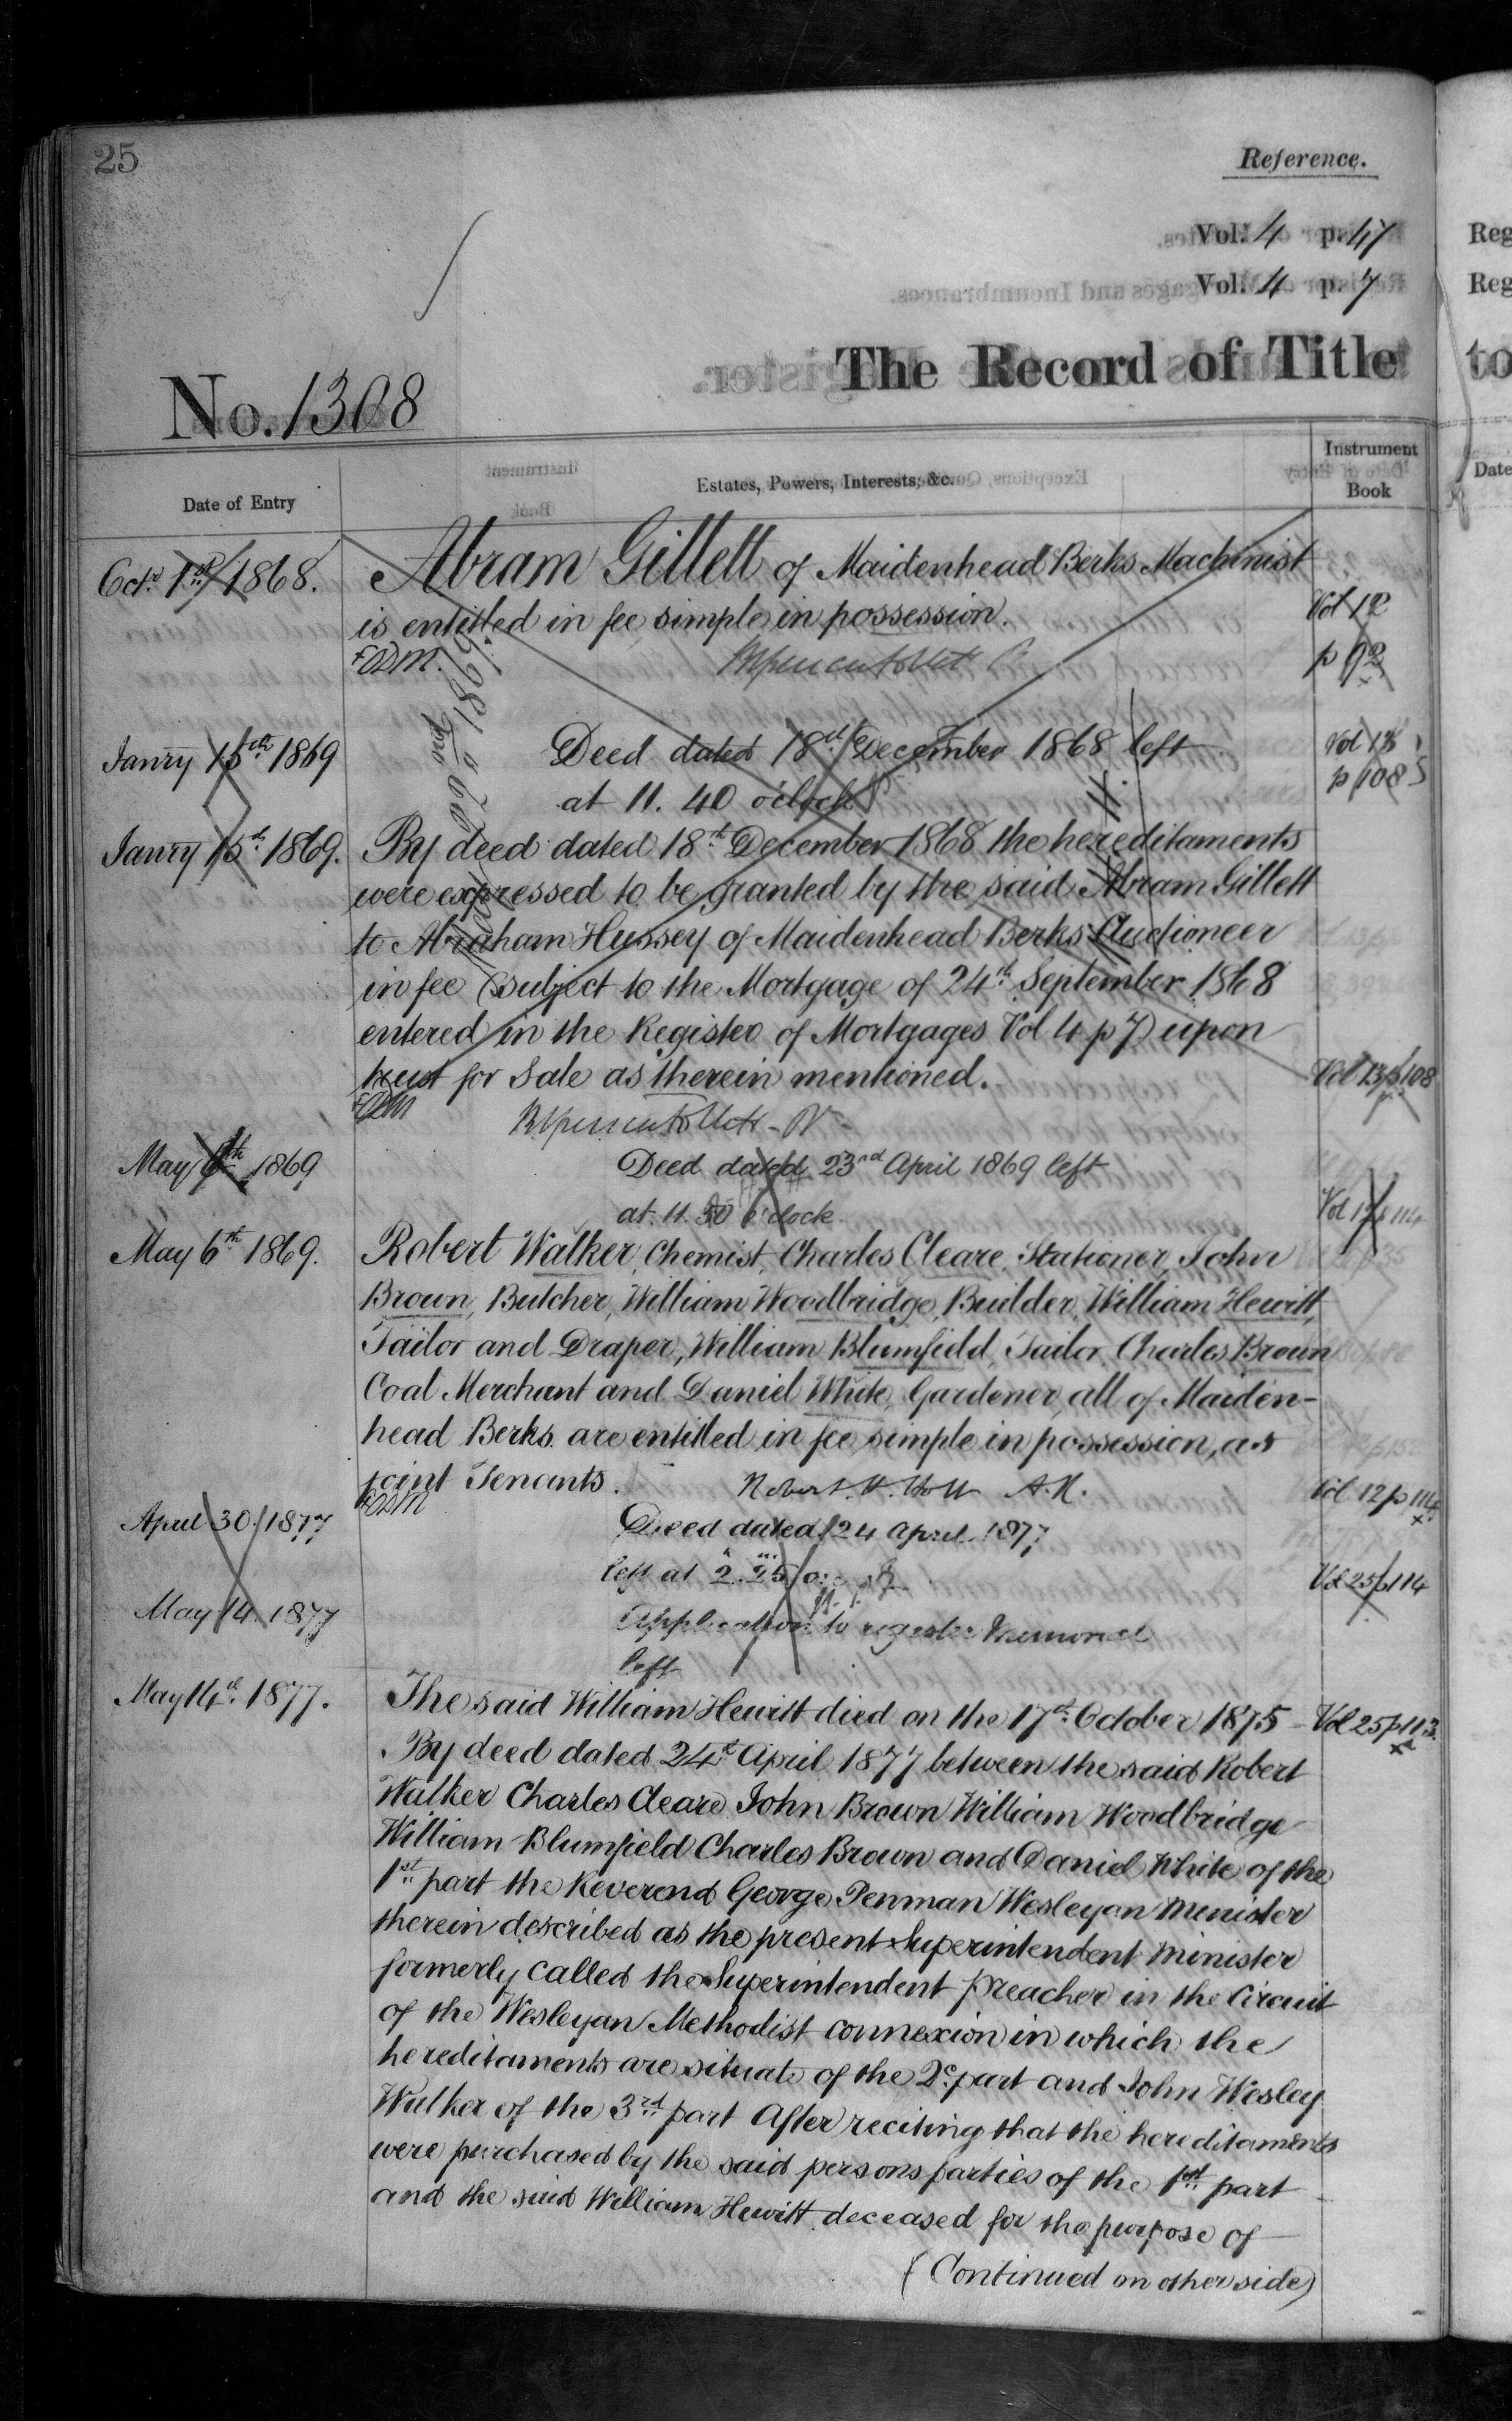 25
Reference.
Vol. 4 p. 47
Vol. 4 p. 7
Reg
Reg
The Record of Title
to
No. 1308
Date of Entry
Estates, Powers, Interests, &c.
Instrument
Book
Date
Octr. 1st 1868.
Abram Gillett of Maidenhead Berks Machinist
is entitled in fee simple in possession.
Vol 12
p 92
Janry 15th 1869
Deed dated 18th December 1868 left
at 11. 40 o'clock
Vol 13
p 108
22nd 1869
Janry 15th 1869.
By deed dated 18th December 1868 the hereditaments
were expressed to be granted by the said Abram Gillett
to Abraham Hussey of Maidenhead Berks Auctioneer
in fee (subject to the Mortgage of 24th September 1868
entered in the Register of Mortgages Vol 4 p 7) upon
trust for Sale as therein mentioned.
Vol 13 p 108
May 6th 1869
Deed dated 23rd April 1869 left
at 11. 50 o'clock
Vol 12 p 114
May 6th 1869.
Robert Walker, Chemist, Charles Cleare, Stationer, John
Brown, Butcher, William Woodbridge, Builder, William Hewitt,
Tailor and Draper, William Blumfield, Tailor, Charles Brown
Coal Merchant and Daniel White, Gardener, all of Maiden-
head Berks. are entitled in fee simple in possession, as
joint Tenants.
Vol. 12 p 114
April 30. 1877
Deed dated 24 April 1877
left at 2.25
Vol 25 p 114
May 14. 1877
Application to register Memorial
left
May 14th 1877.
The said William Hewitt died on the 17th October 1875
Vol 25 p 113
By deed dated 24th April 1877 between the said Robert
Walker Charles Cleare John Brown William Woodbridge
William Blumfield Charles Brown and Daniel White of the
1st part the Reverend George Penman Wesleyan Minister
therein described as the present Superintendent Minister
formerly called the Superintendent Preacher in the Circuit
of the Wesleyan Methodist connexion in which the
hereditaments are situate of the 2d. part and John Wesley
Walker of the 3rd part After reciting that the hereditaments
were purchased by the said persons parties of the 1st part
and the said William Hewitt deceased for the purpose of
(Continued on other side)